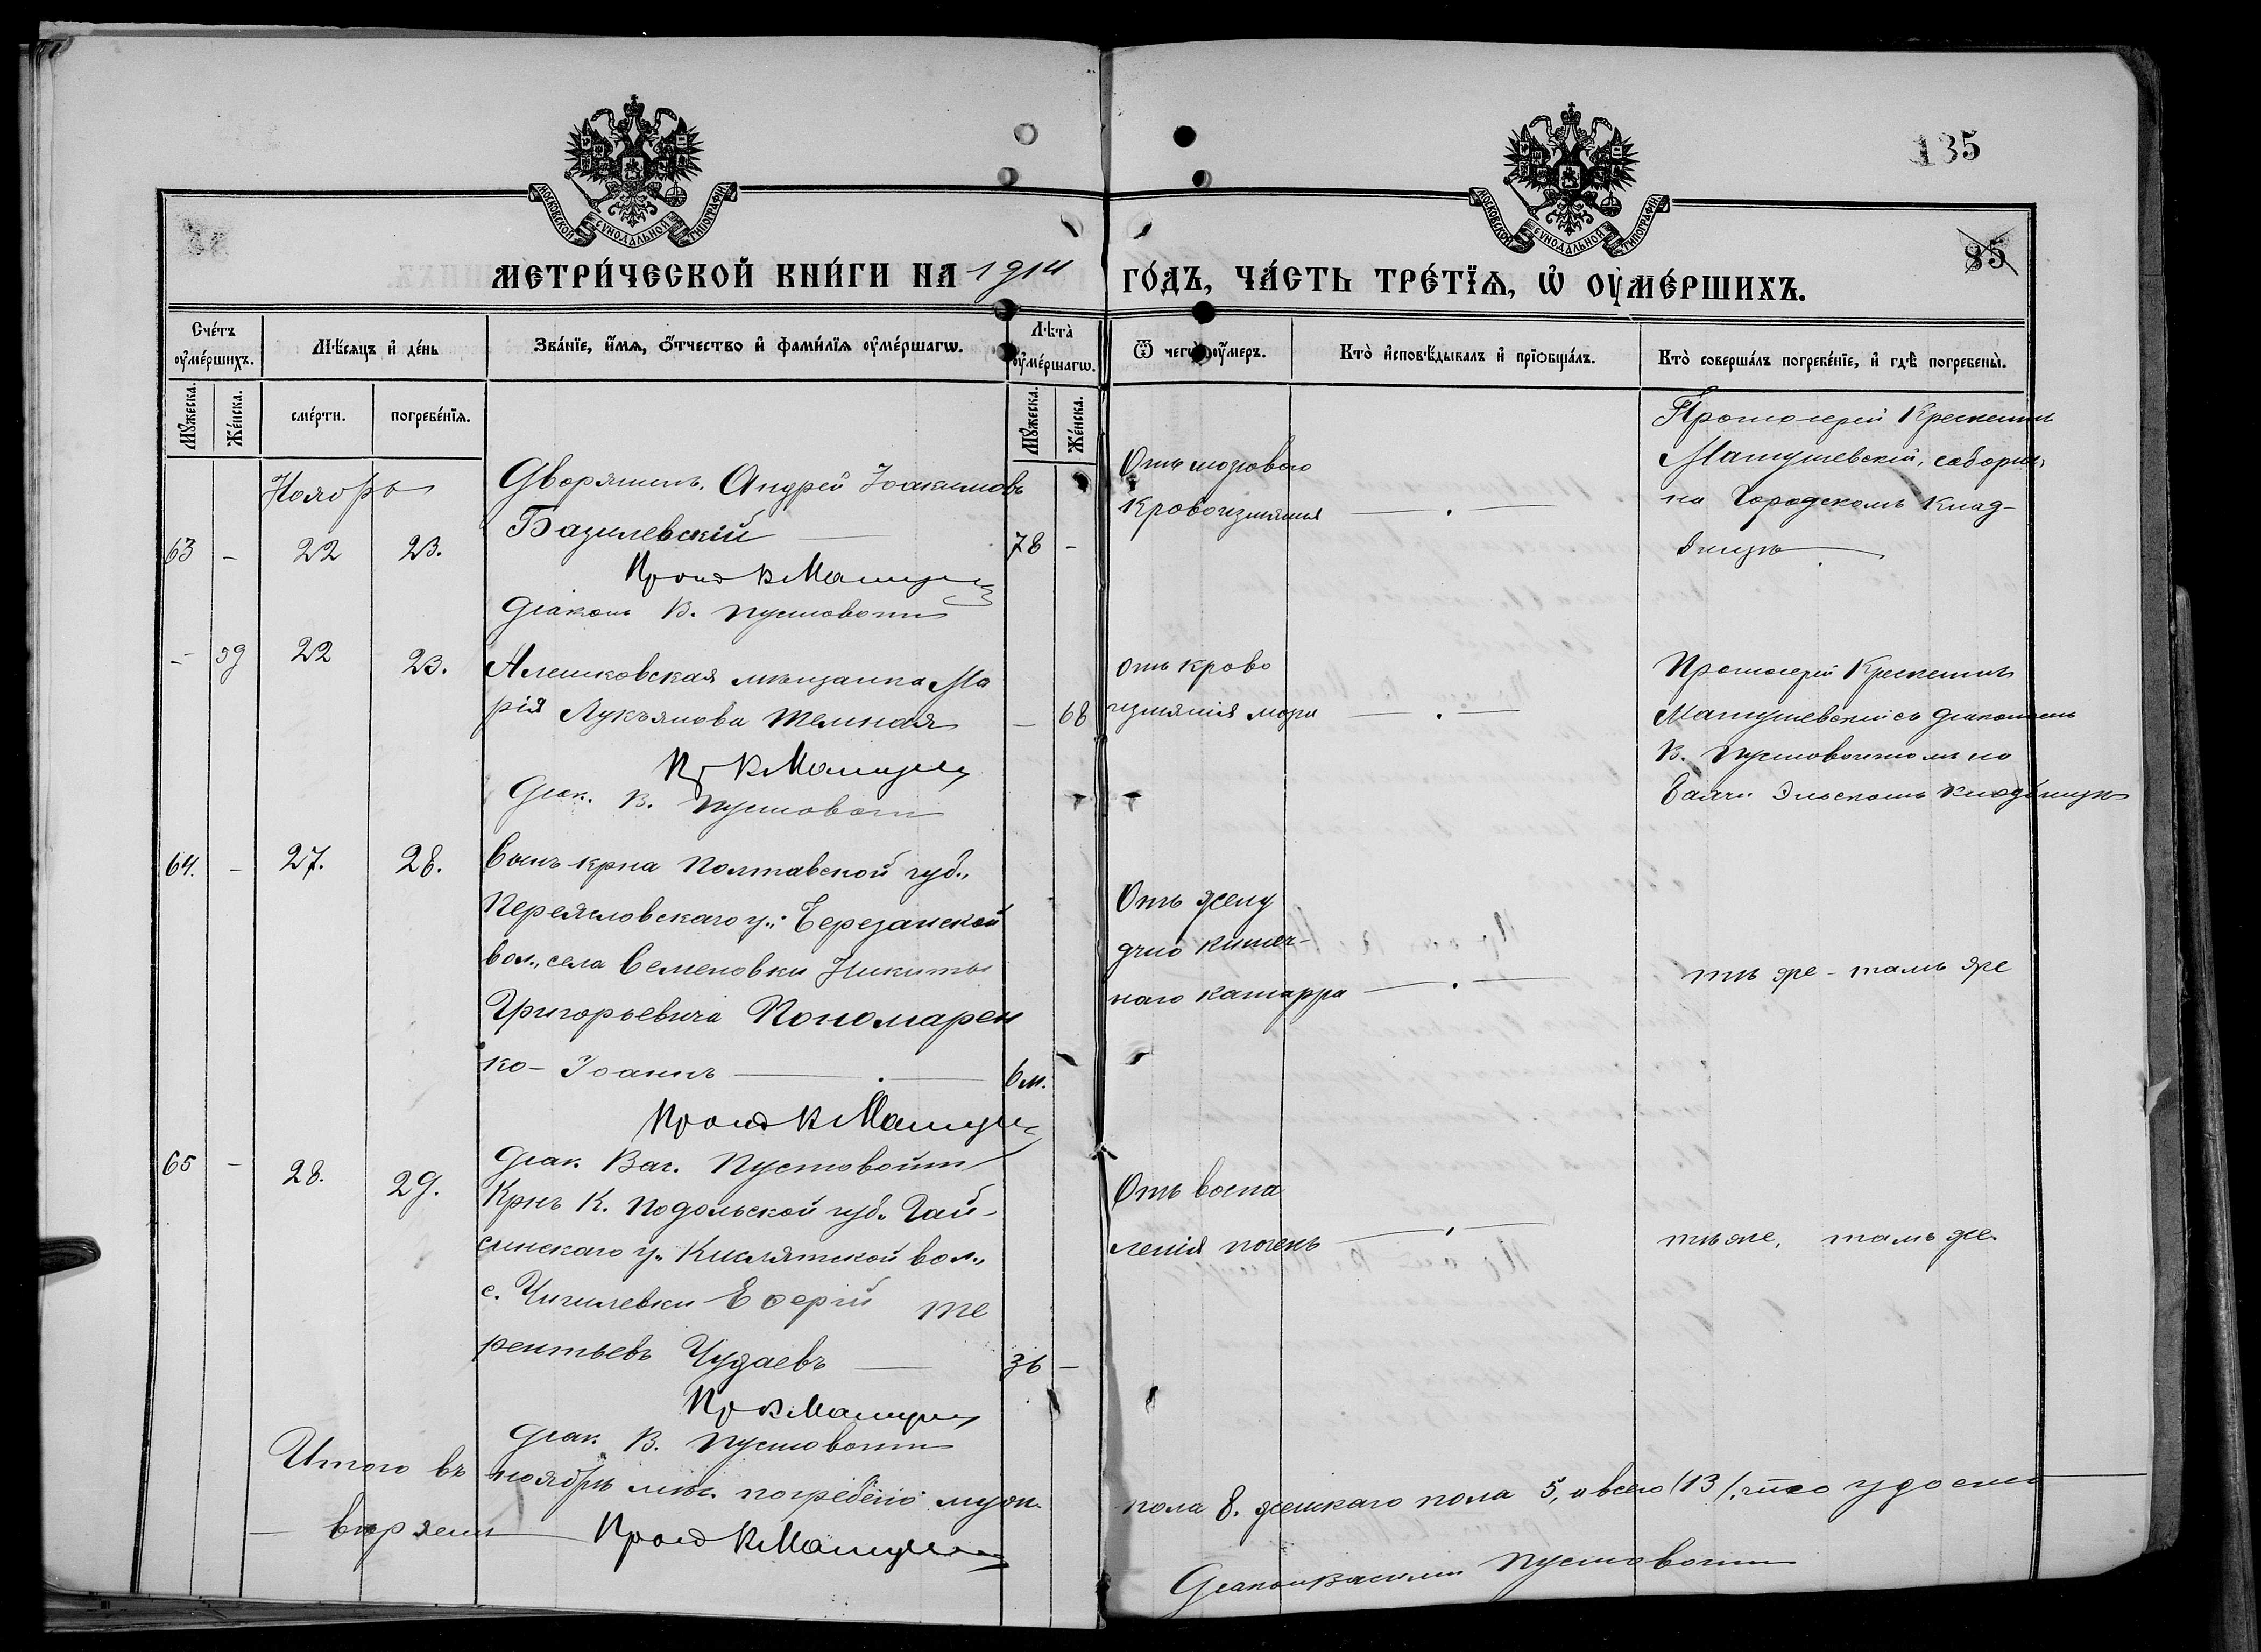 135
85
МОСКОВСКОЙ СѴНОДАЛЬНОЙ ТИПОГРАФІИ
МОСКОВСКОЙ СѴНОДАЛЬНОЙ ТИПОГРАФІИ
МЕТРИ́ЧЕСКОЙ КНИ́ГИ НА 1914 ГО́ДЪ, ЧА́СТЬ ТРЕ́ТЇѦ, Ѡ҆ ОУ҆МЕ́РШИХЪ.
Сче́тъ оу҆ме́ршихъ.
Мꙋ́жеска.
Же́нска.
Мѣ́сяцъ и҆ де́нь
сме́рти.
погребе́нїѧ.
Зва́нїе, и҆́мѧ, ѻ҆́тчество и҆ фами́лїѧ оу҆ме́ршагѡ.
Лѣ́та оу҆ме́ршагѡ.
Мꙋ́жеска.
Же́нска.
Ѿ чегѡ̀ оу҆́меръ.
Кто̀ и҆сповѣ́дывалъ и҆ прїѡбща́лъ.
Кто̀ соверша́лъ погребе́нїе, и҆ гдѣ̀ погребены̀.
Ноябрь
63 - 22 23.
Дворянинъ Андрей Іоакимовъ
Базилевскій — 78 -
Прот К Матуше
Діаконъ В. Пустовойтъ
Отъ мозгового
кровоизліянія — . —
Протоіерей Крескентъ
Матушевскій, соборн,
на Городскомъ клад-
бищѣ
- 59 22 23.
Алешковская мѣщанка Ма
рія Лукьянова Темная - 68
Пр К Матуше
Діак. В. Пустовойт
отъ крово
изліянія мозга — . —
Протоіерей Крескентъ
Матушевскій съ діакономъ
В. Пустовойтомъ на
кладбищѣ
64. - 27. 28.
Сынъ крна Полтавской губ.,
Переясловскаго у.: Березанской
вол., села Семеновки Никиты
Григорьевича Пономарен
ко - Іоаннъ — . — 6 м.
Прот К Матуше
Діак. Вас. Пустовойтъ
Отъ желу
дчно кишеч-
наго катарра — . —
тѣ же - тамъ же
65 - 28. 29.
Крнъ К. Подольской губ. Гай-
синскаго у. Кислятской вол.,
с. Чигилевки Те
рентьевъ Чудаевъ — 36 -
Пр К Матуше
Діак. В. Пустовойтъ
Отъ воспа
ленія почекъ — . —
тѣ же, тамъ же.
Итого въ ноябрѣ мѣс. погребено мужск. пола 8. женскаго пола 5, а всего (13), что удосто
вѣряемъ Прот К Матуше
Діаконъ Василій Пустовойтъ